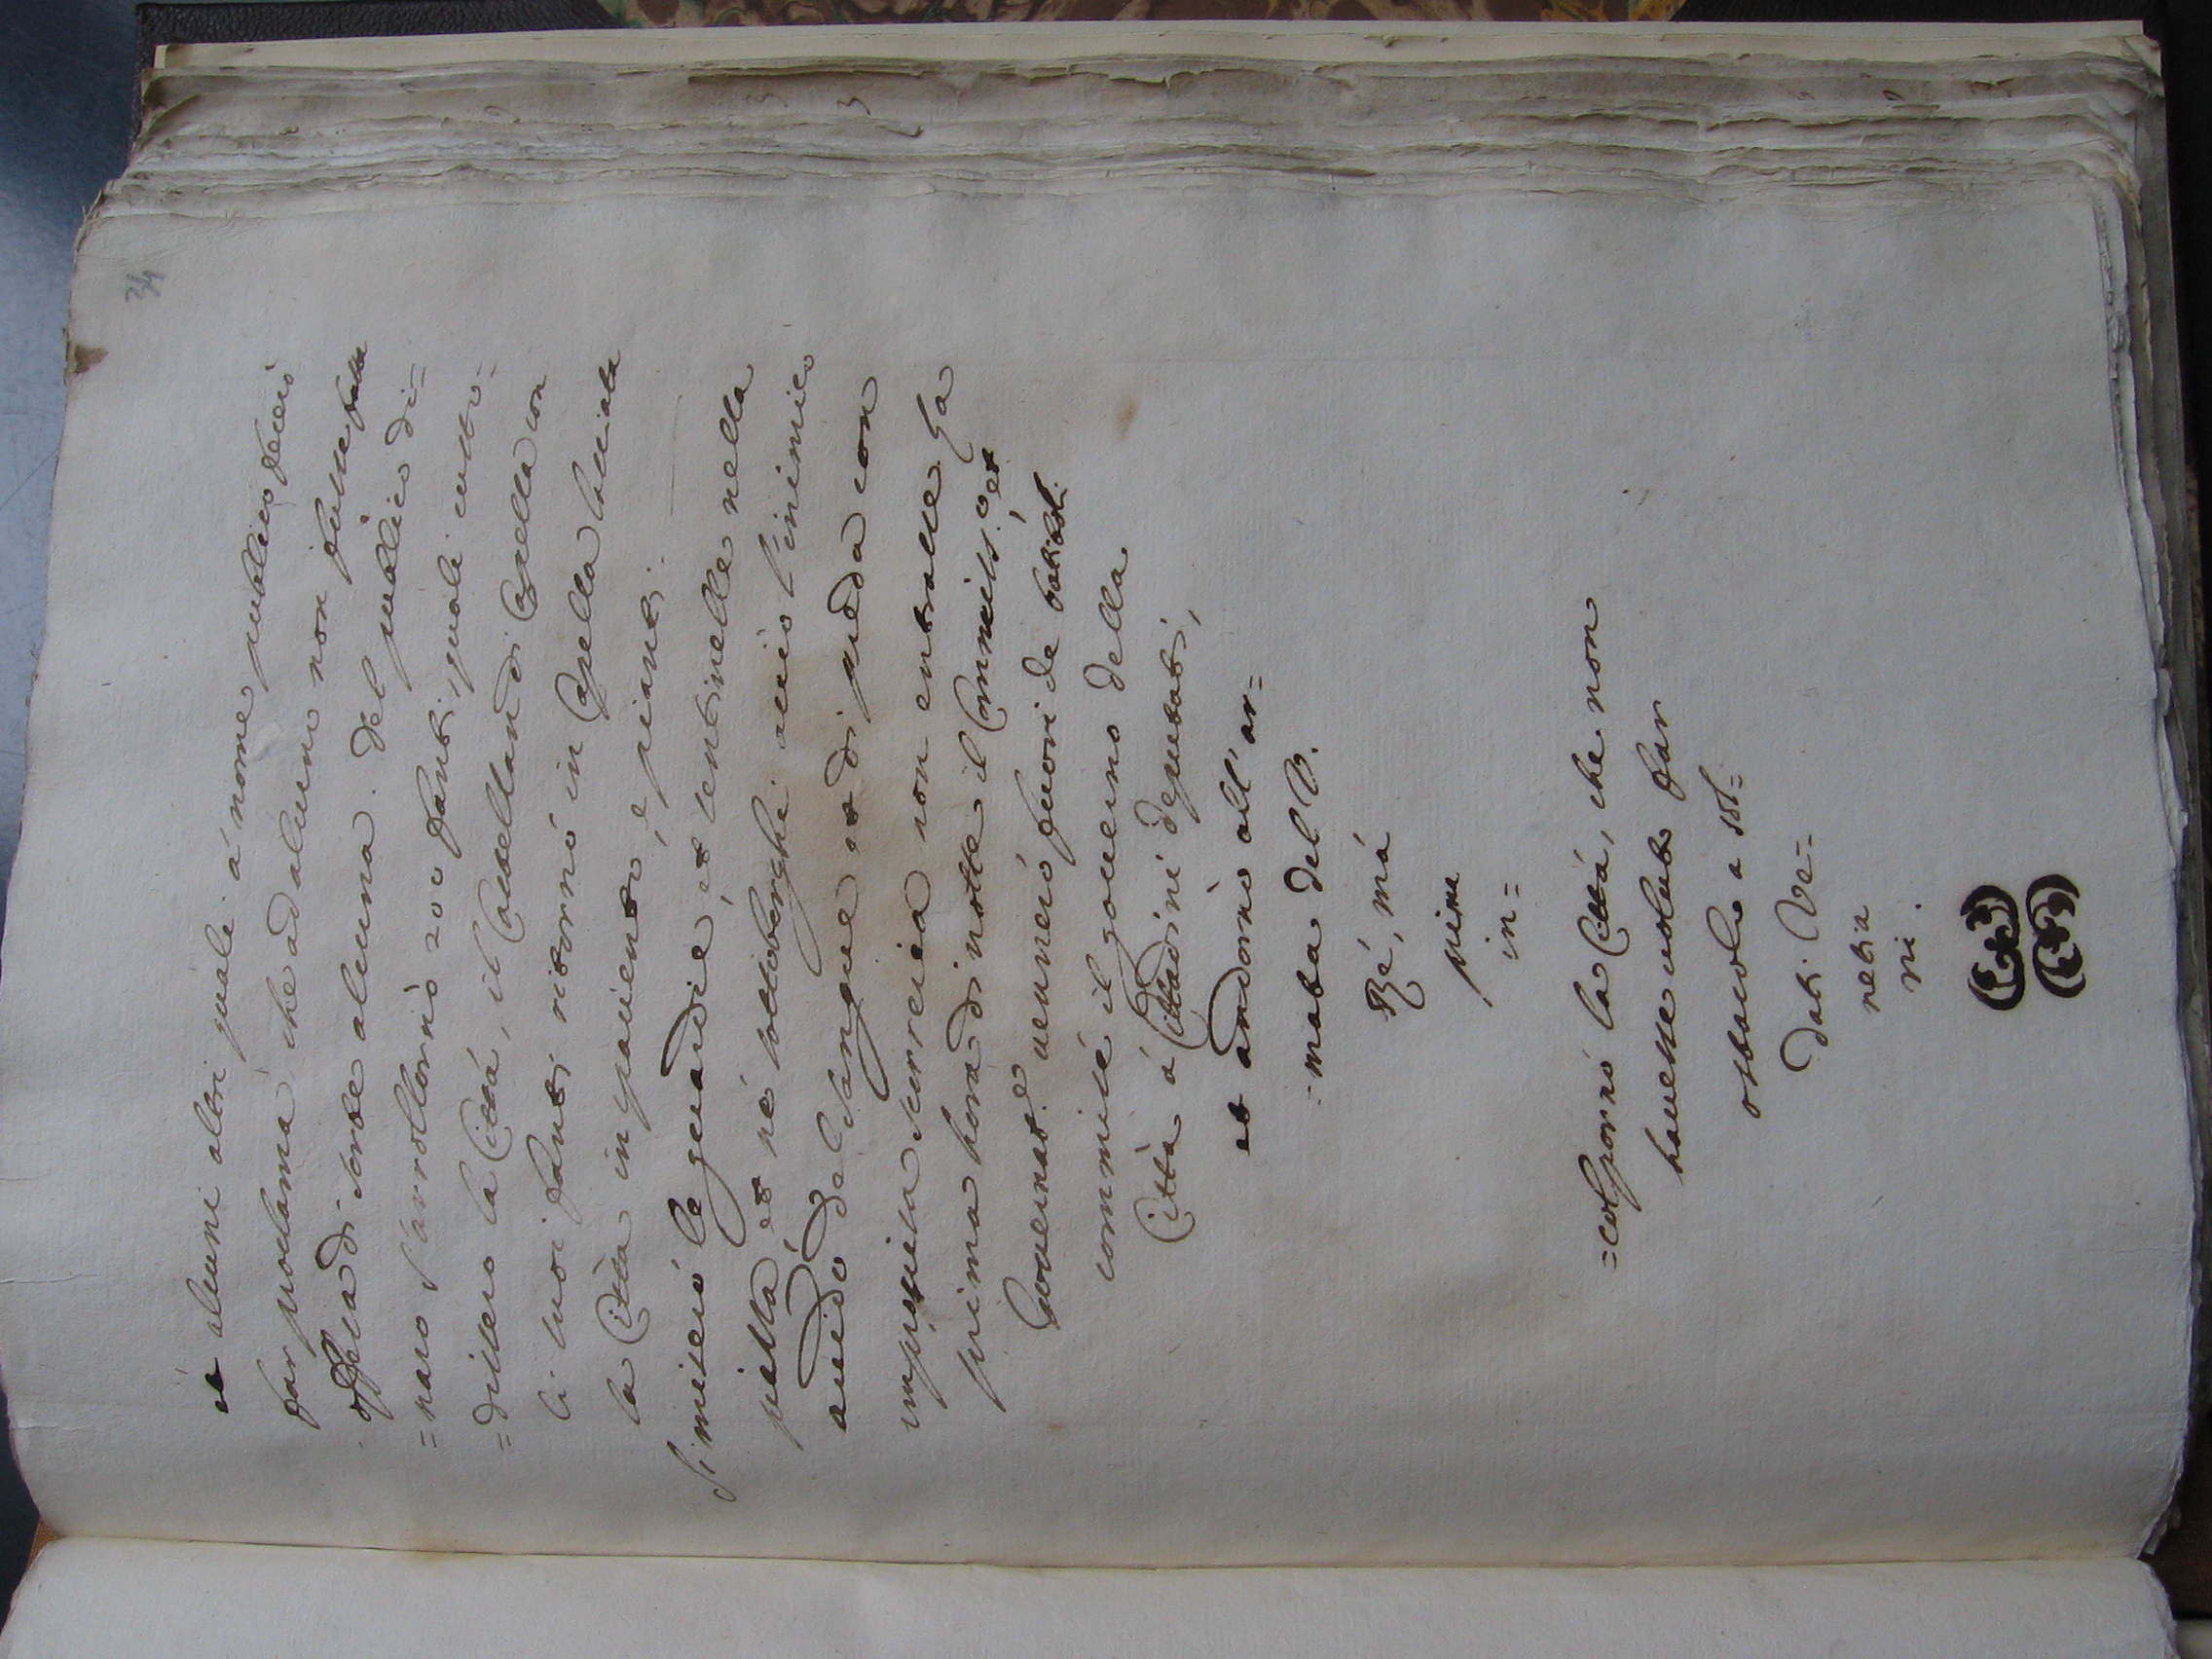 34
et alcuni altri quali á nome publico fecero
far proclama che ad alcuno non fusse fatta
offesa di sorte alcuna. Del publico di=
=naro s'arrollornò 200 fanti, quali custo=
=dissero la Città, il Castellan di Capella con
li suoi fanti ritornò in Capella lasciata
la Città in spavento, e pianti.
Si miserò le guardie, et sentinelle nella
Città, et nè sottoborghi acciò l'inimico
avido del sangue et di preda con
improvisa scorreria non entrasse. La
prima hora di notte il Commiss.º et
Governat.e vennerò fuori de
commise il governo della
Città á Cittadini deputati,
et andorno all'ar=
=mata del V.
Ré, má
prima
in=
=colpornò la Città, che non
havesse voluto far
ostacolo a sol=
dati Ve=
netia
ni.